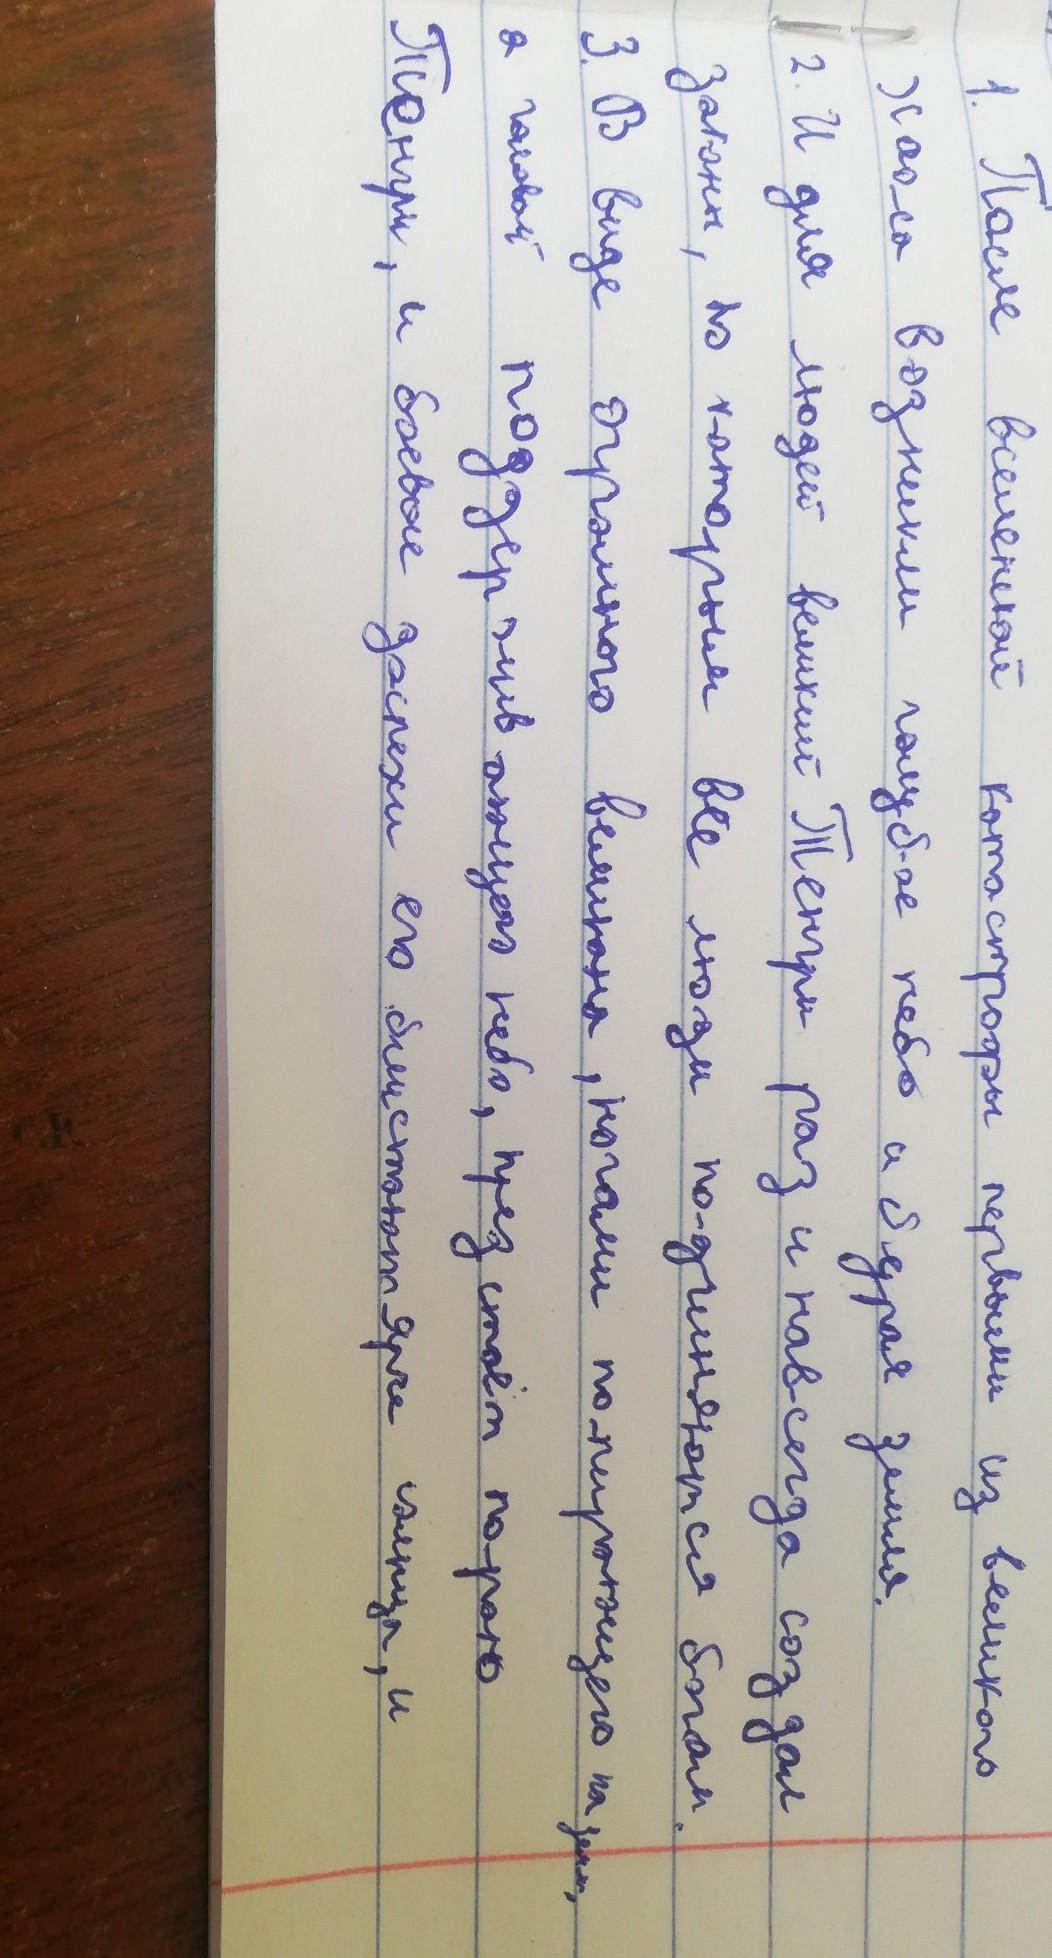 1. После вселенной катастрофы первыми из великого
Хаоса возникли голубое небо и бурая земля.
2. И для людей великий Тенгри раз и навсегда создал
законы, по которым все люди подчиняются богам.
3. В виде огромного великана, ногами попирающего на земли,
а головой поддерживающего небо, предстаёт порою
Тенгри, и боевые доспехи его блистают ярче солнца, и